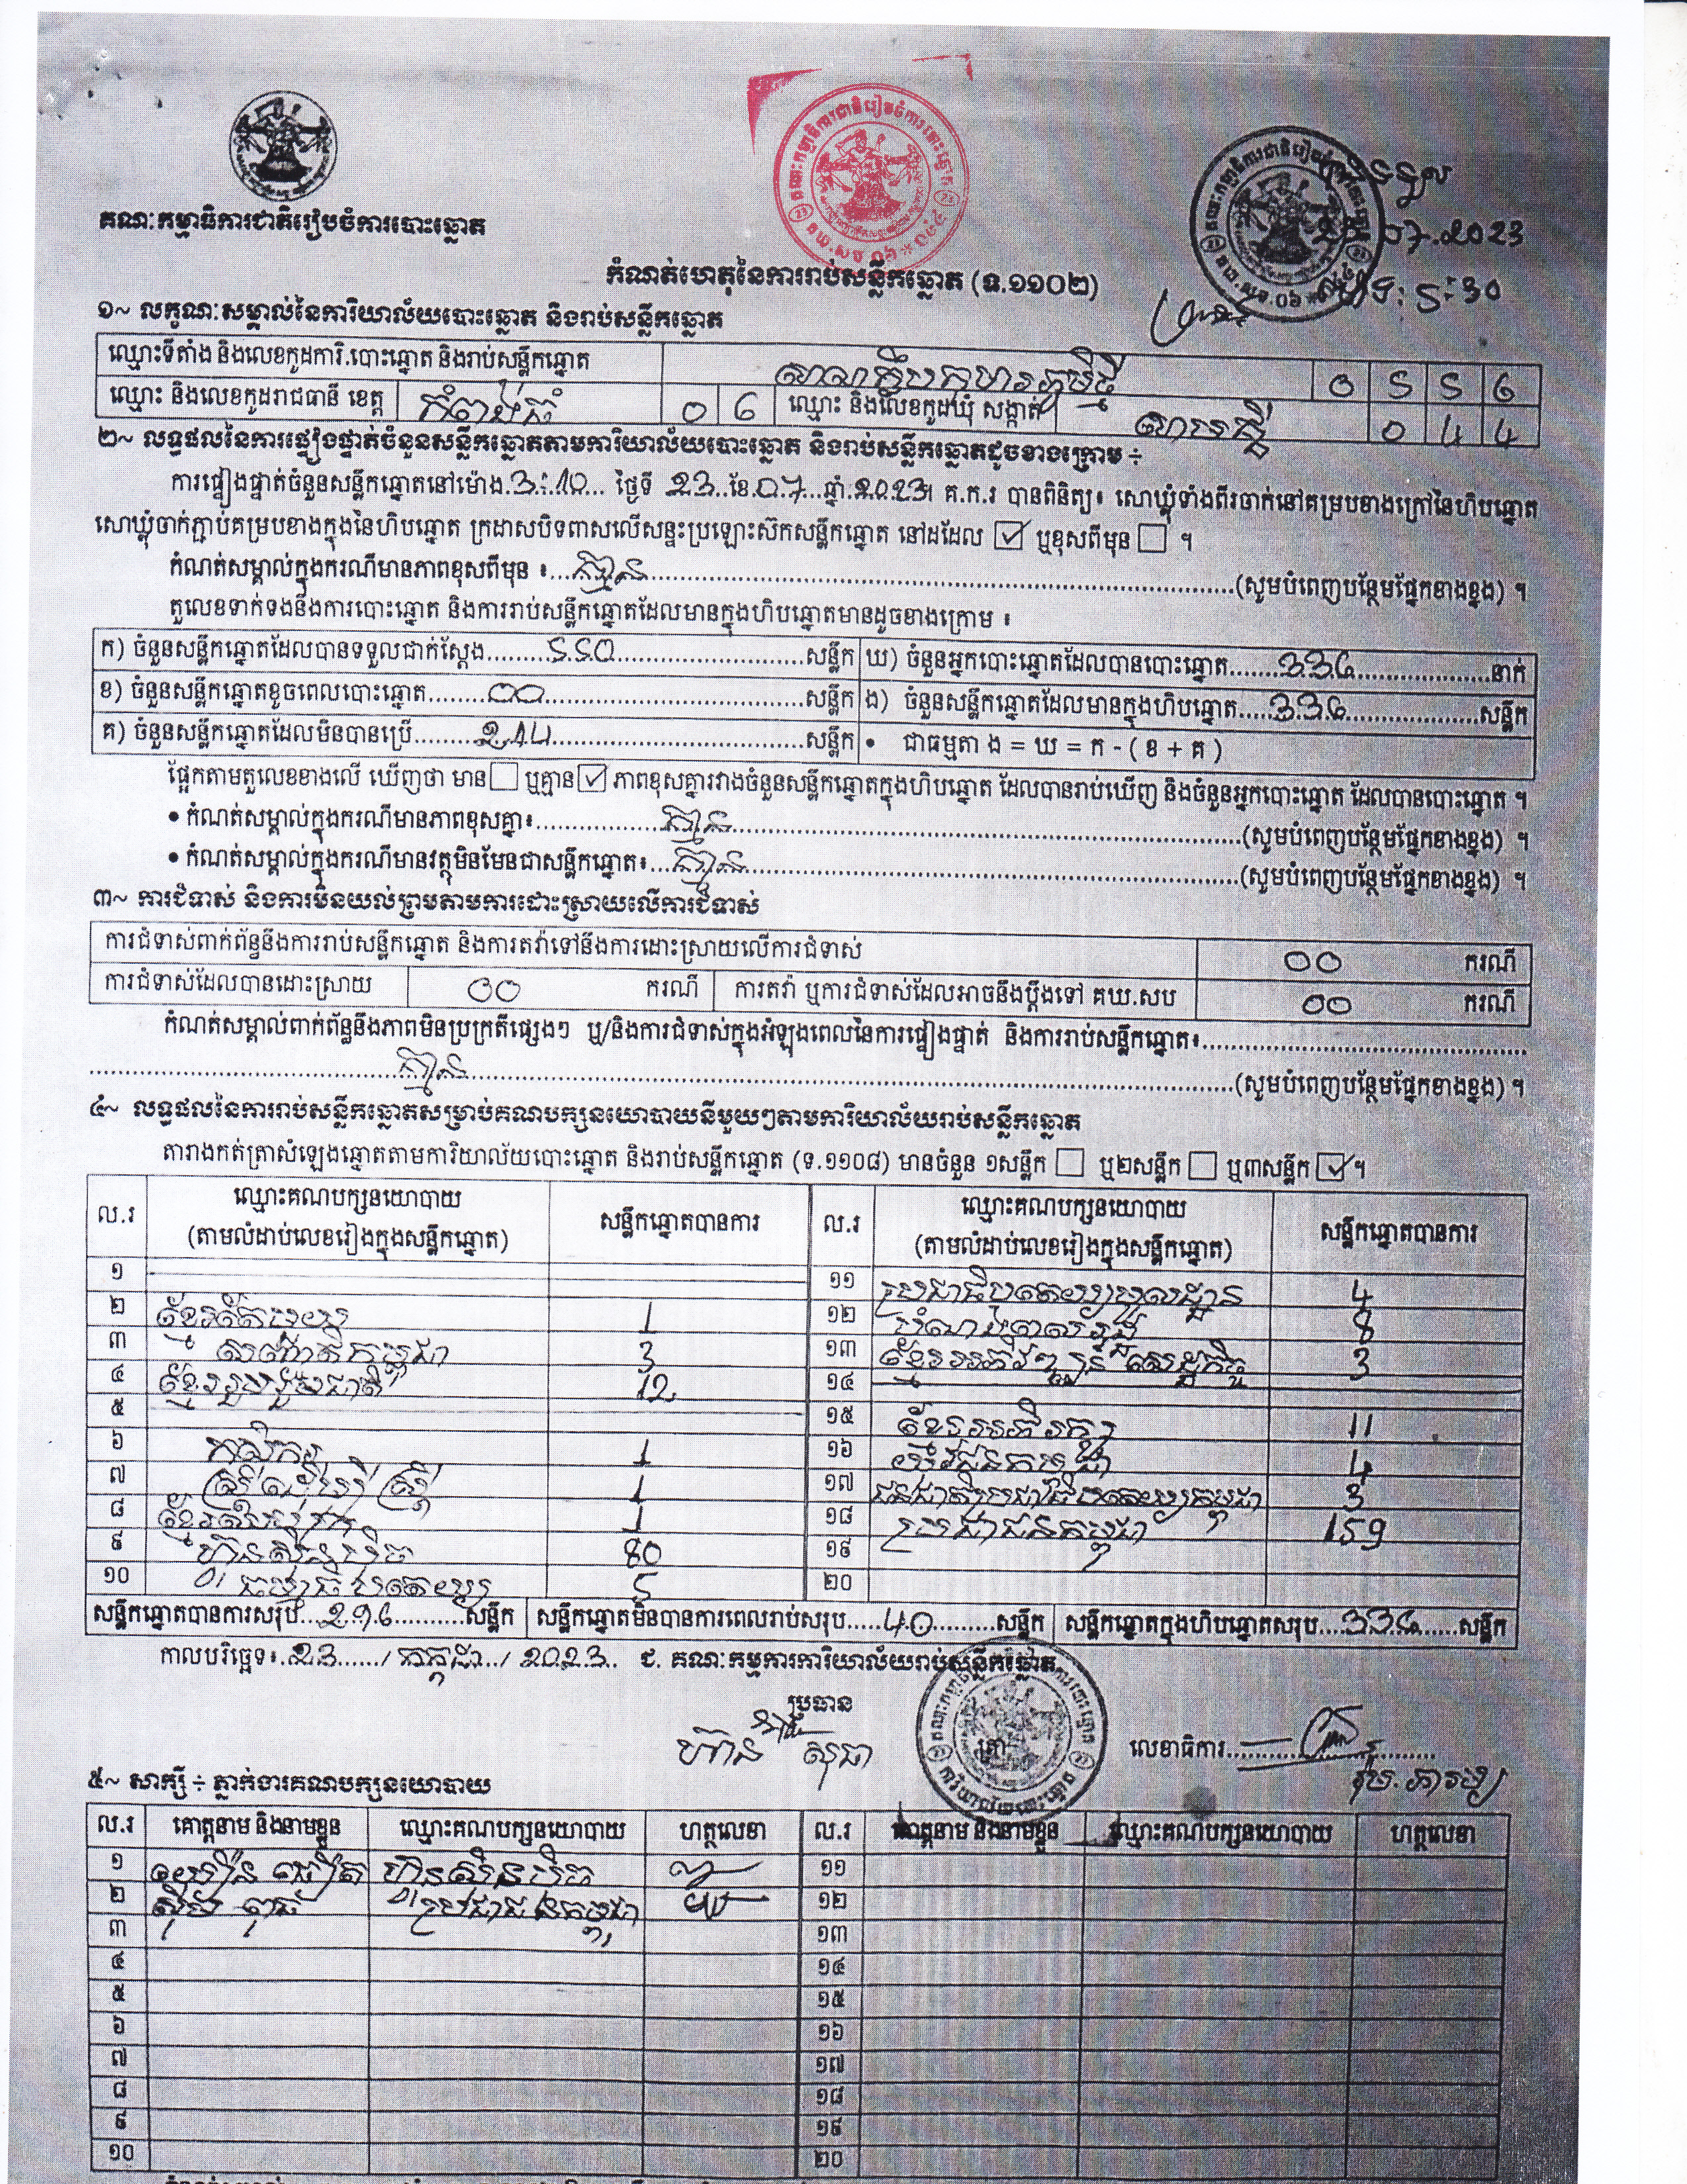 គណៈកម្មាធិការជាតិរៀបចំការបោះឆ្នោត
07.2023
5:30
កំណត់ហេតុនៃការរាប់សន្លឹកឆ្នោត (ទ.១១០២)
១~ លក្ខណៈសម្គាល់នៃការិយាល័យបោះឆ្នោត និងរាប់សន្លឹកឆ្នោត
ឈ្មោះទីតាំង និងលេខកូដការិ.បោះឆ្នោត និងរាប់សន្លឹកឆ្នោត 0 5 5 6
ឈ្មោះ និងលេខកូដរាជធានី ខេត្ត កំពង់ធំ 0 6 ឈ្មោះ និងលេខកូដឃុំ សង្កាត់ 0 4 4
២~ លទ្ធផលនៃការផ្ទៀងផ្ទាត់ចំនួនសន្លឹកឆ្នោតតាមការិយាល័យបោះឆ្នោត និងរាប់សន្លឹកឆ្នោតដូចខាងក្រោម ÷
ការផ្ទៀងផ្ទាត់ចំនួនសន្លឹកឆ្នោតនៅម៉ោង 3:10 ថ្ងៃទី 23 ខែ 07 ឆ្នាំ 2023។ គ.ក.រ បានពិនិត្យ៖ សោឃ្លុំទាំងពីរចាក់នៅគម្របខាងក្រៅនៃហិបឆ្នោត
សោឃ្លុំចាក់ភ្ជាប់គម្របខាងក្នុងនៃហិបឆ្នោត ក្រដាសបិទពាសលើសន្ទះប្រឡោះស៊កសន្លឹកឆ្នោត នៅដដែល ☑ ឬខុសពីមុន ☐ ។
កំណត់សម្គាល់ក្នុងករណីមានភាពខុសពីមុន ៖ គ្មាន (សូមបំពេញបន្ថែមផ្នែកខាងខ្នង) ។
តួលេខទាក់ទងនឹងការបោះឆ្នោត និងការរាប់សន្លឹកឆ្នោតដែលមានក្នុងហិបឆ្នោតមានដូចខាងក្រោម ៖
ក) ចំនួនសន្លឹកឆ្នោតដែលបានទទួលជាក់ស្តែង 550 សន្លឹក ឃ) ចំនួនអ្នកបោះឆ្នោតដែលបានបោះឆ្នោត 336 នាក់
ខ) ចំនួនសន្លឹកឆ្នោតខូចពេលបោះឆ្នោត 00 សន្លឹក ង) ចំនួនសន្លឹកឆ្នោតដែលមានក្នុងហិបឆ្នោត 336 សន្លឹក
គ) ចំនួនសន្លឹកឆ្នោតដែលមិនបានប្រើ 214 សន្លឹក • ជាធម្មតា ង = ឃ = ក - ( ខ + គ )
ផ្អែកតាមតួលេខខាងលើ ឃើញថា មាន ☐ ឬគ្មាន ☑ ភាពខុសគ្នារវាងចំនួនសន្លឹកឆ្នោតក្នុងហិបឆ្នោត ដែលបានរាប់ឃើញ និងចំនួនអ្នកបោះឆ្នោត ដែលបានបោះឆ្នោត ។
• កំណត់សម្គាល់ក្នុងករណីមានភាពខុសគ្នា៖ គ្មាន (សូមបំពេញបន្ថែមផ្នែកខាងខ្នង) ។
• កំណត់សម្គាល់ក្នុងករណីមានវត្ថុមិនមែនជាសន្លឹកឆ្នោត៖ គ្មាន (សូមបំពេញបន្ថែមផ្នែកខាងខ្នង) ។
៣~ ការជំទាស់ និងការមិនយល់ព្រមតាមការដោះស្រាយលើការជំទាស់
ការជំទាស់ពាក់ព័ន្ធនឹងការរាប់សន្លឹកឆ្នោត និងការតវ៉ាទៅនឹងការដោះស្រាយលើការជំទាស់ 00 ករណី
ការជំទាស់ដែលបានដោះស្រាយ 00 ករណី ការតវ៉ា ឬការជំទាស់ដែលអាចនឹងប្តឹងទៅ គឃ.សប 00 ករណី
កំណត់សម្គាល់ពាក់ព័ន្ធនឹងភាពមិនប្រក្រតីផ្សេងៗ ឬ/និងការជំទាស់ក្នុងអំឡុងពេលនៃការផ្ទៀងផ្ទាត់ និងការរាប់សន្លឹកឆ្នោត៖
គ្មាន (សូមបំពេញបន្ថែមផ្នែកខាងខ្នង) ។
៤~ លទ្ធផលនៃការរាប់សន្លឹកឆ្នោតសម្រាប់គណបក្សនយោបាយនីមួយៗតាមការិយាល័យរាប់សន្លឹកឆ្នោត
តារាងកត់ត្រាសំឡេងឆ្នោតតាមការិយាល័យបោះឆ្នោត និងរាប់សន្លឹកឆ្នោត (ទ.១១០៨) មានចំនួន ១សន្លឹក ☐ ឬ២សន្លឹក ☐ ឬ៣សន្លឹក ☑ ។
ល.រ ឈ្មោះគណបក្សនយោបាយ (តាមលំដាប់លេខរៀងក្នុងសន្លឹកឆ្នោត) សន្លឹកឆ្នោតបានការ ល.រ ឈ្មោះគណបក្សនយោបាយ (តាមលំដាប់លេខរៀងក្នុងសន្លឹកឆ្នោត) សន្លឹកឆ្នោតបានការ
១ ១១ ប្រជាធិបតេយ្យមូលដ្ឋាន 4
២ 1 ១២ 8
៣ 3 ១៣ ខ្មែរអភិវឌ្ឍន៍សេដ្ឋកិច្ច 3
៤ ខ្មែររួបរួមជាតិ 12 ១៤
៥ ១៥ ខ្មែរអភិរក្ស 11
៦ កសិករ 1 ១៦ យុវជនកម្ពុជា 4
៧ 1 ១៧ 3
៨ 1 ១៨ ប្រជាជនកម្ពុជា 159
៩ ហ៊្វុនស៊ិនប៉ិច 80 ១៩
១០ ធម្មាធិបតេយ្យ 5 ២០
សន្លឹកឆ្នោតបានការសរុប 296 សន្លឹក សន្លឹកឆ្នោតមិនបានការពេលរាប់សរុប 40 សន្លឹក សន្លឹកឆ្នោតក្នុងហិបឆ្នោតសរុប 336 សន្លឹក
កាលបរិច្ឆេទ៖ 23 / កក្កដា / 2023 ជ. គណៈកម្មការការិយាល័យរាប់សន្លឹកឆ្នោត
ប្រធាន
លេខាធិការ
៥~ សាក្សី ÷ ភ្នាក់ងារគណបក្សនយោបាយ
ល.រ គោត្តនាម និងនាមខ្លួន ឈ្មោះគណបក្សនយោបាយ ហត្ថលេខា ល.រ គោត្តនាម និងនាមខ្លួន ឈ្មោះគណបក្សនយោបាយ ហត្ថលេខា
១ ហ៊្វុនស៊ិនប៉ិច ១១
២ ប្រជាជនកម្ពុជា ១២
៣ ១៣
៤ ១៤
៥ ១៥
៦ ១៦
៧ ១៧
៨ ១៨
៩ ១៩
១០ ២០